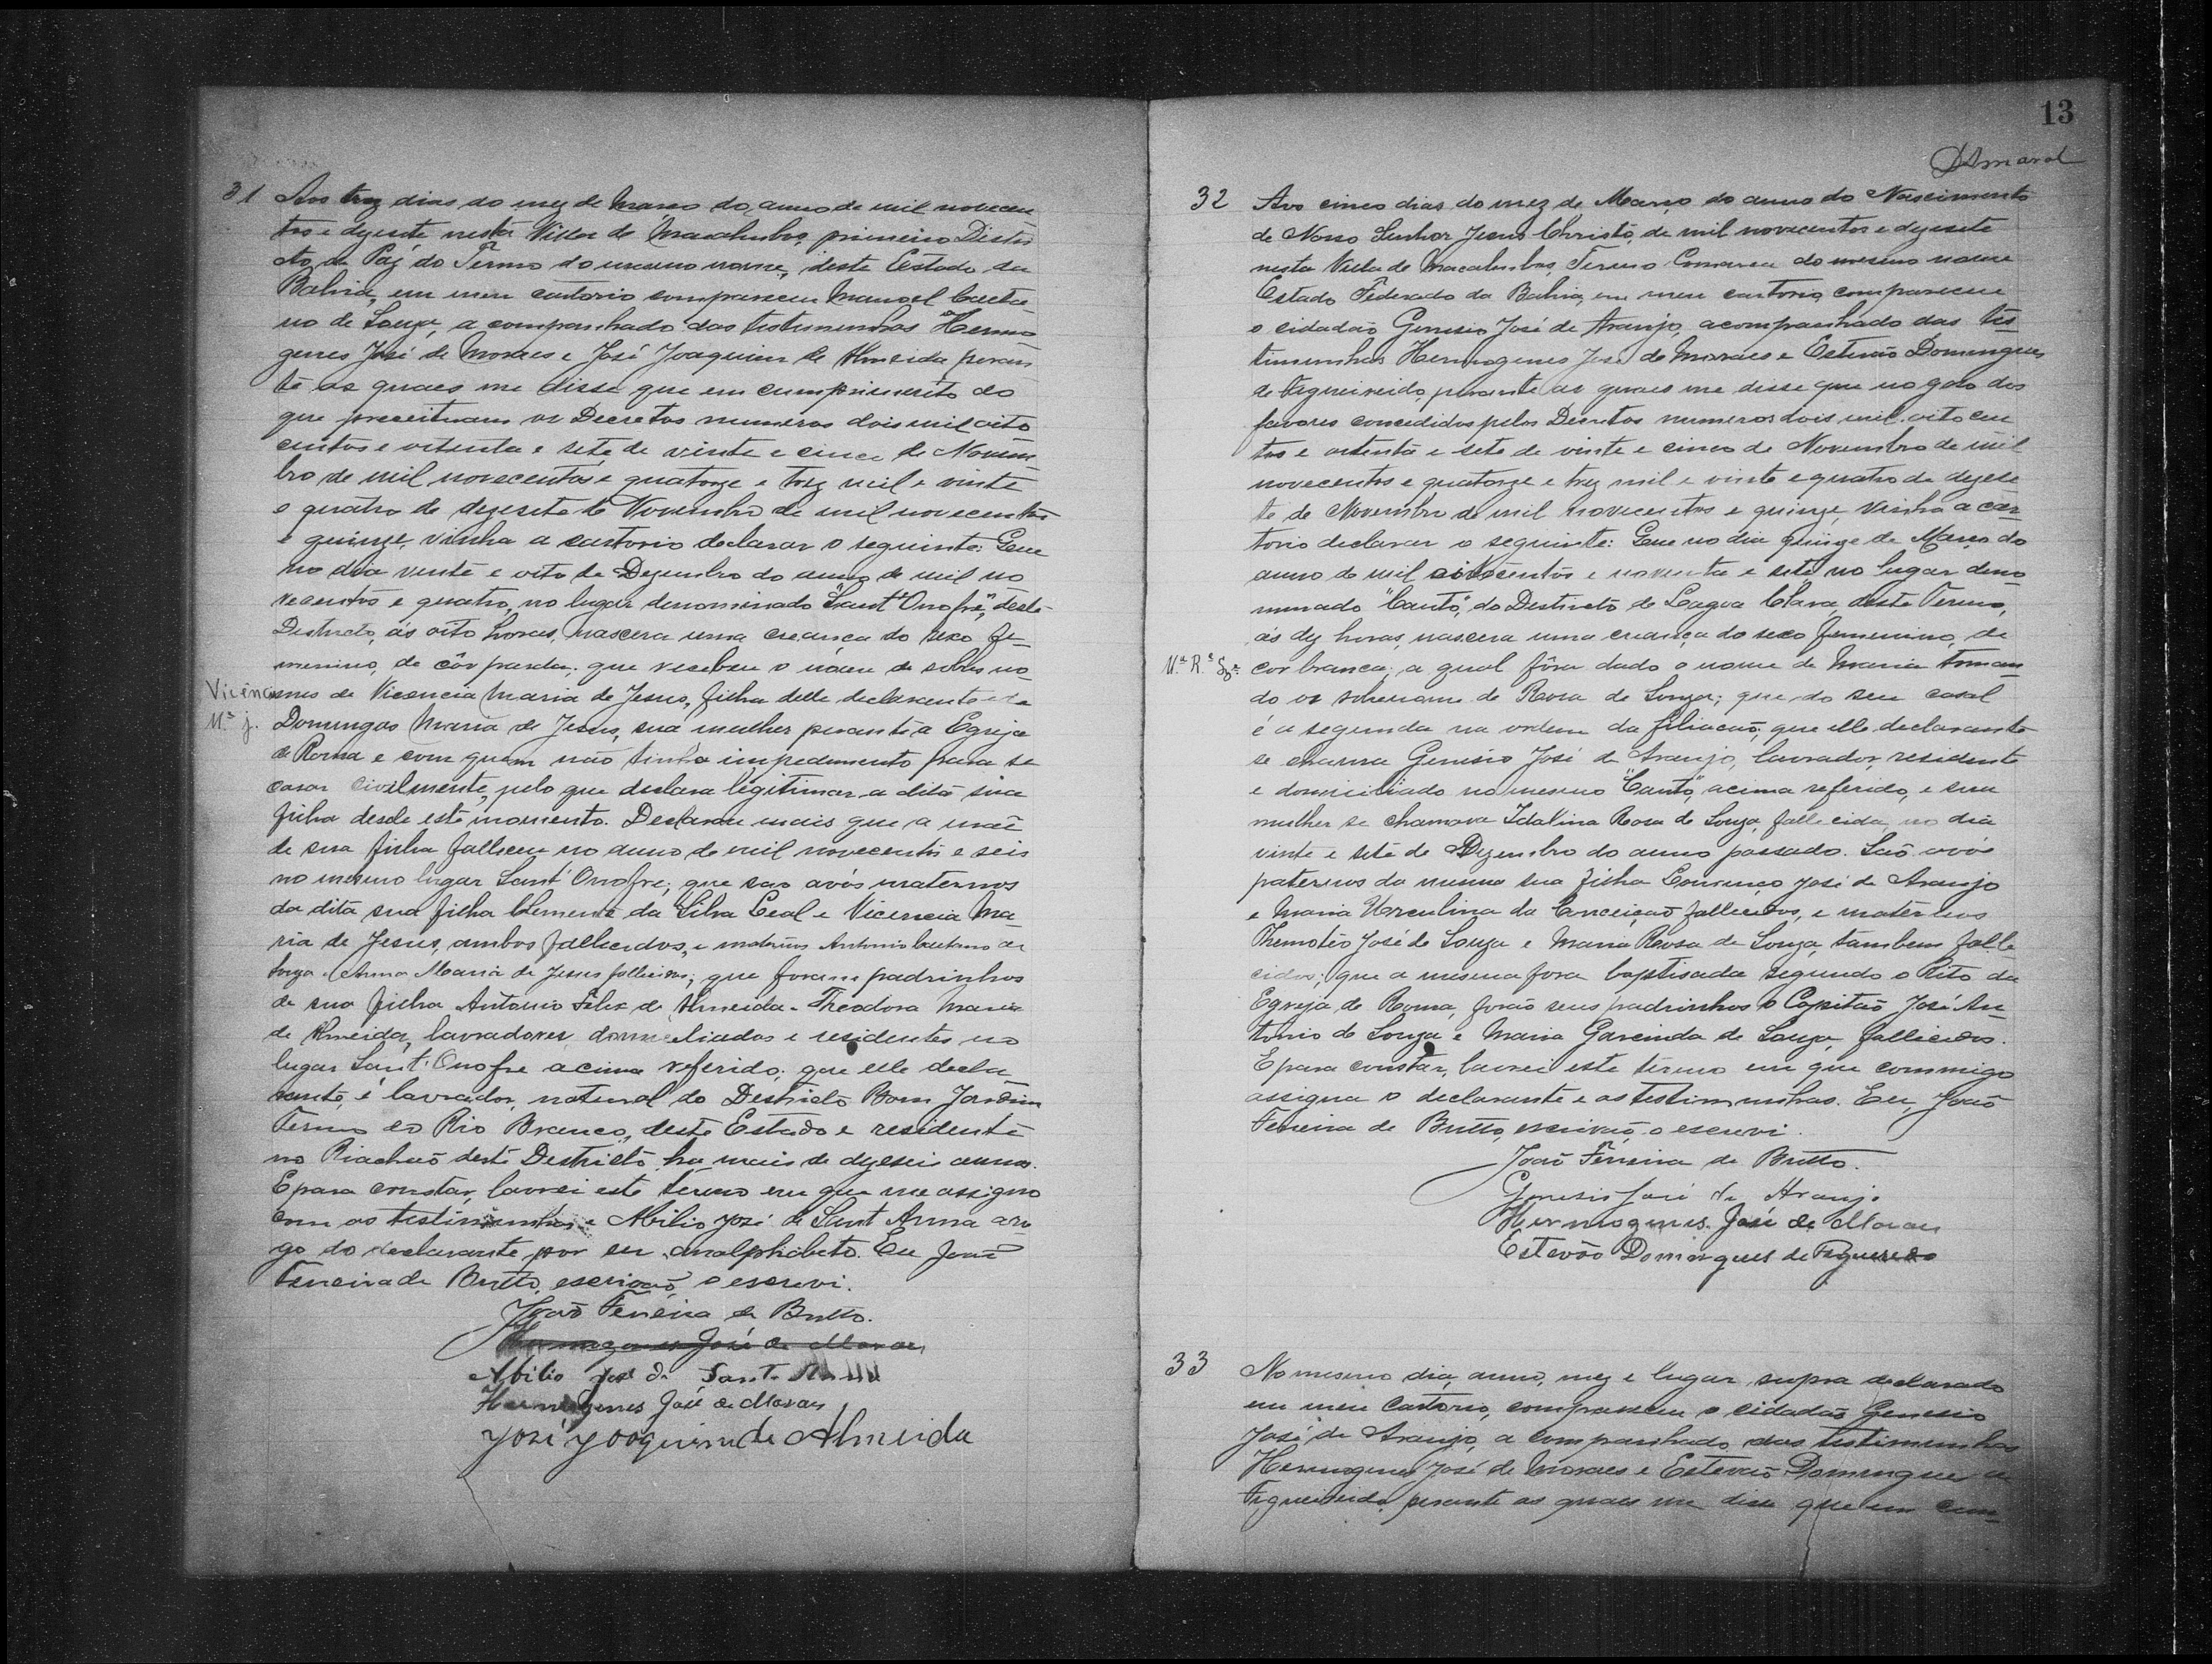 31 Aos trez dias do mez de Março do anno de mil novecen
tos e dezesete nesta Villa de Macahubas, primeiro Distri
cto de Paz do Termo do mesmo nome, deste Estado da
Bahia, em meu cartorio compareceu Manoel Caeta
no de Souza, a companhado das testimunhas Hermo
genes José de Moraes e José Joaquim de Almeida peran
te as quaes me disse que em cumprimento do
que preceituam os Decretos numeros dois mil oito
centos e oitenta e sete de vinte e cinco de Novem
bro de mil novecentos e quatorze e trez mil e vinte
e quatro de dezesete de Novembro de mil novecentos
e quinze, vinha a cartorio declarar o seguinte: Que
no dia vinte e oito de Dezembro do anno de mil no
vecentos e quatro, no lugar denominado "Sant'Onofre", deste
Districto, ás oito horas, nascera uma creança do sexo fe-
menino, de côr parda, que recebeu o nome de sobre no-
Vicência
mes de Vicencia Maria de Jesus, filha delle declarante e de
Mª j.
Domingas Maria de Jesus, sua mulher perante a Egreja
de Roma e com quem não tinha impedimento para se
casar civilmente, pelo que declara legitimar a dita sua
filha desde este momento. Declarou mais que a mãe
de sua filha falleceu no anno de mil novecentos e seis
no mesmo lugar Sant'Onofre; que são avós maternos
da dita sua filha Clemente da Silva Leal e Vicencia Ma
ria de Jesus, ambos fallecidos, e maternos Antonio Caetano de
Souza e Anna Maria de Jesus fallecidos; que foram padrinhos
de sua filha Antonio Felix de Almeida e Theodora Maria
de Almeida, lavradores domiciliados e residentes no
lugar Sant'Onofre acima referido; que elle decla
rante, é lavrador, natural do Destricto Bom Jardim
Termo do Rio Branco, deste Estado e residente
no Riachaõ deste Destricto, ha mais de dezeseis annos.
E para constar, lavrei este termo em que me assigno
com as testimunhas e Abilio José de Sant'Anna aro
go do declarante por ser analphabeto. Eu Joaõ
Ferreira de Britto, escrivaõ, o escrevi.
Joaõ Ferreira de Britto.
Hermogenes José de Moraes
Abilio José de Sant
Hermogenes José de Moraes
José Joaquim de Almeida
13
Amaral
32 Aos cinco dias do mez de Março do anno do Nascimento
de Nosso Senhor Jesus Christo, de mil novecentos e dezesete
nesta Villa de Macahubas, Termo Comarca do mesmo nome
Estado Federado da Bahia, em meu cartorio, compareceu
o cidadaõ Genesio José de Araujo, acompanhado das tes
timunhas Hermogenes José de Moraes e Estevão Domingues
de Figueiredo, perante as quaes me disse que no goso dos
favores concedidos pelos Decretos numeros dois mil oito cen
tos e oitenta e sete de vinte e cinco de Novembro de mil
novecentos e quatorze e trez mil e vinte e quatro de dezese
te de Novembro de mil novecentos e quinze, vinha a car
torio declarar o seguinte: Que no dia quinze de Março do
anno de mil oitocentos e noventa e sete no lugar deno
minado "Canto", do Destricto de Lagoa Clara, deste Termo,
ás dez horas, nascera uma creança do sexo femenino, de
Mª Rª Szª
cor branca; a qual fôra dado o nome de Maria toman
do os sobrenome de Rosa de Souza; que do seu casal
é a segunda na ordem da filiacaõ; que elle declarante
se chama Genesio José de Araujo, lavrador, residente
e domiciliado no mesmo "Canto", acima referido, e sua
mulher se chamava Idalina Rosa de Souza, fallecida, no dia
vinte e sete de Dezembro do anno passado. Saõ avós
paternos da mesma sua filha Lourenço José de Araujo
e Maria Urculina da Conceiçaõ fallecidos, e maternos
Themotéo José de Souza e Maria Rosa de Souza, tambem falle
cidos; que a mesma fora baptisada segundo o Rito da
Egreja de Roma, foraõ seus padrinhos o Capitaõ José An
tonio de Souza e Maria Garcinda de Souza, fallecidos.
E para constar, lavrei este termo em que commigo
assigna o declarante e as testimunhas. Eu, Joaõ
Ferreira de Britto, escrivaõ, o escrevi.
Joaõ Ferreira de Britto.
Genesio José de Araujo
Hermogenes José de Moraes
Estevão Domingues de Figueredo
33 No mesmo dia, anno, mez e lugar supra declarado
em meu Cartorio, compareceu o cidadaõ Genesio
José de Araujo, a companhado das testimunhas
Hermogenes José de Moraes e Estevaõ Domingues de
Figueiredo, perante as quaes me disse que em cum-